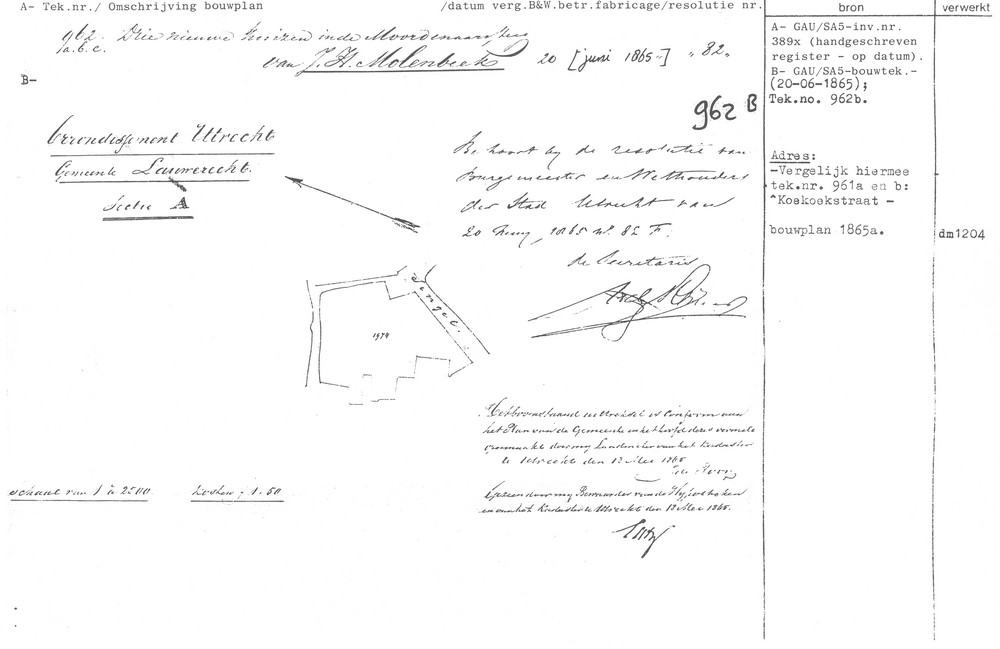 A- Tek.nr./ Omschrijving bouwplan /datum verg.B&W.betr.fabricage/resolutie nr. bron verwerkt
962. Drie nieuwe huizen in de Moordenaars
a.b.c.
van J. H. Molenbeek 20 [juni 1865] „82„
B-
A- GAU/SA5-inv.nr.
389x (handgeschreven
register - op datum).
B- GAU/SA5-bouwtek.-
(20-06-1865);
Tek.no. 962b.
962 B
Arrondissement Utrecht
Gemeente Lauwerecht.
Sectie A
Behoort bij de resolutie van
Burgemeester en Wethouders
der Stad Utrecht van
20 Juny 1865 n°. 82 F.
de Secretaris
Adres:
-Vergelijk hiermee
tek.nr. 961a en b:
^Koekoekstraat -
bouwplan 1865a.
dm1204
Singel.
1974
Het bovenstaand uittreksel is Conform aan
het Plan van de Gemeente in het hoofd dezes vermeld
gemaakt door my Landmeter van het Kadaster
te Utrecht den 13 Mei 1865
Gezien door my Bewaarder van de Hypotheken
en van het Kadaster te Utrecht den 13 Mei 1865.
schaal van 1 à 2500
Kosten ƒ 1.50